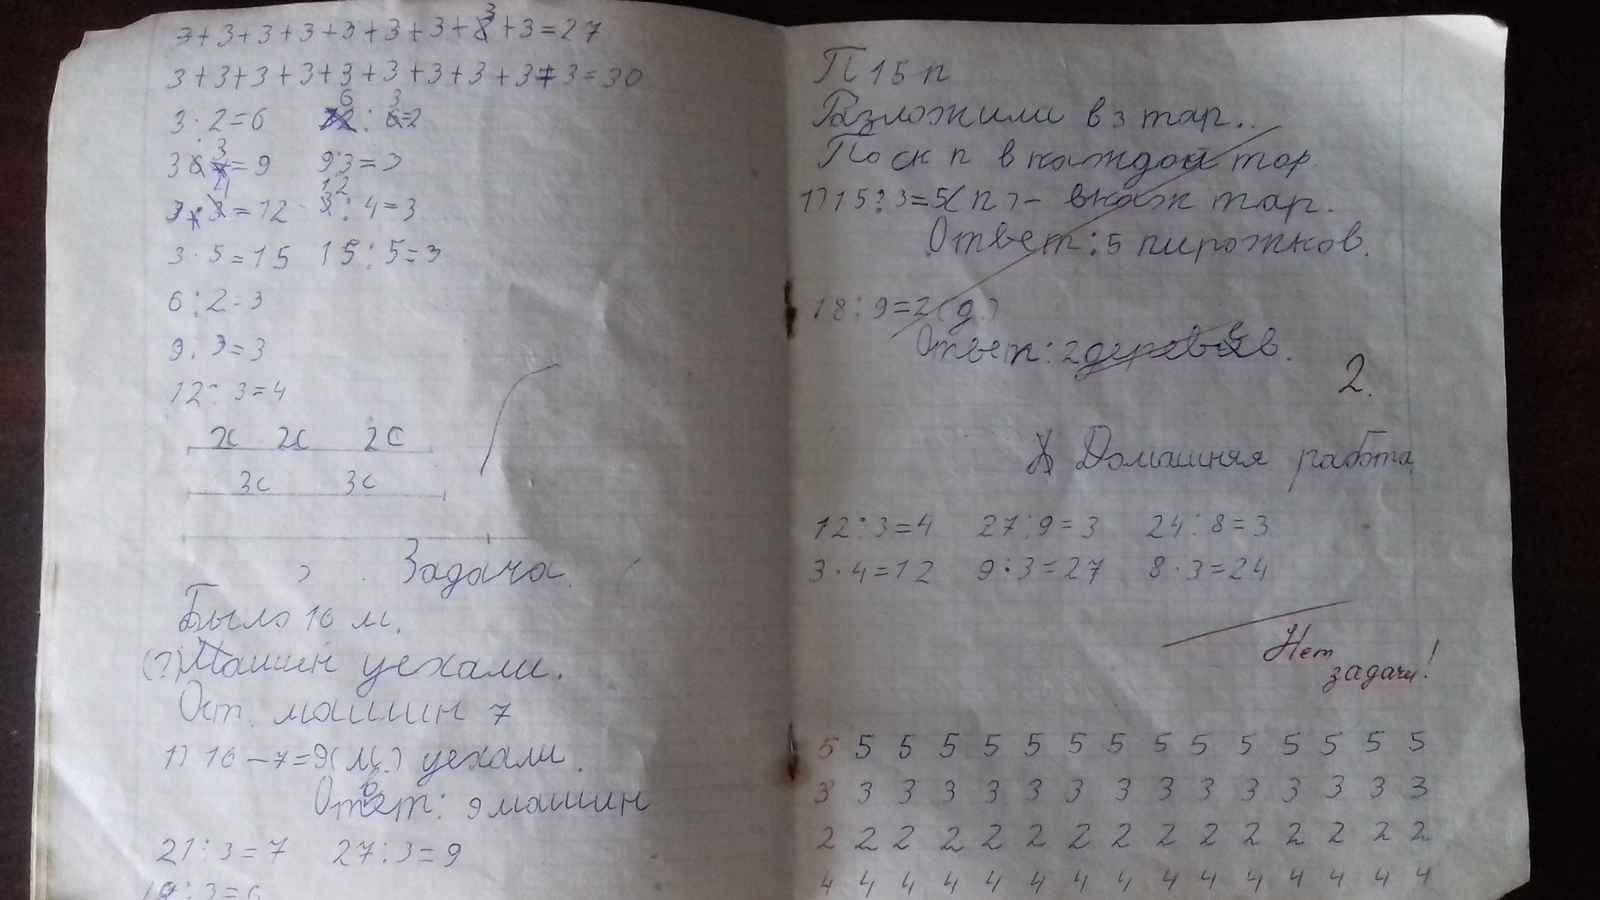 3+3+3+3+3+3+3+3+3=27
3+3+3+3+3+3+3+3+3+3=30
3·2=6 6:3=2
3·3=9 9:3=3
3·4=12 12:4=3
3·5=15 15:5=3
6:2=3
9:3=3
12:3=4
2с 2с 2с
3с 3с
Задача.
Было 16 м.
(?) Машин уехали.
Ост. машин 7
1) 16-7=9(м.) уехали.
Ответ: 9 машин
21:3=7 27:3=9
18:3=6
П 15 п
Разложили в 3 тар..
По ск п в каждой тар
1) 15:3=5(п) - в каж тар.
Ответ: 5 пирожков.
18:9=2(д.)
Ответ: 2 деревьев.
2.
Домашняя работа
12:3=4 27:9=3 24:8=3
3·4=12 9:3=27 8·3=24
Нет
задачи!
5 5 5 5 5 5 5 5 5 5 5 5 5 5 5
3 3 3 3 3 3 3 3 3 3 3 3 3 3 3
2 2 2 2 2 2 2 2 2 2 2 2 2 2 2
4 4 4 4 4 4 4 4 4 4 4 4 4 4 4